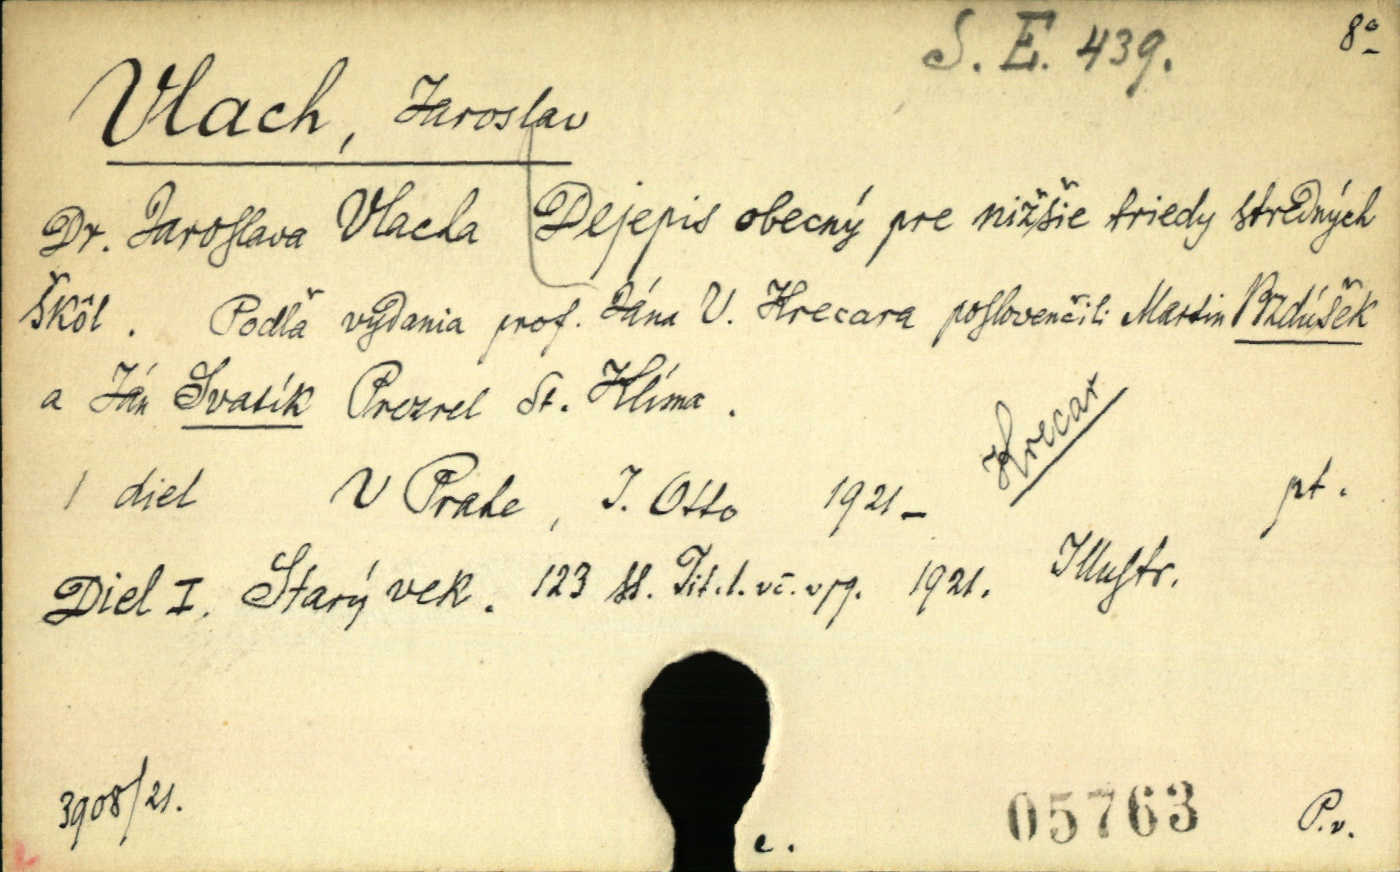 S. E. 439. 8º
Vlach, Jaroslav
Dr. Jaroslava Vlacha Dejepis obecný pre nižšie triedy stredných
škôl. Podľa vydania prof. Jána V. Hrecara poslovenčili Martin Bzdúšek
a Ján Svatík Prezrel St. Klíma.
Hrecar
1 diel V Prahe, J. Otto 1921 – pt.
Diel I. Starý vek. 123 st. Tit. l. vč. v pg. 1921. Illustr.
3908/21. c. 05763 P.v.